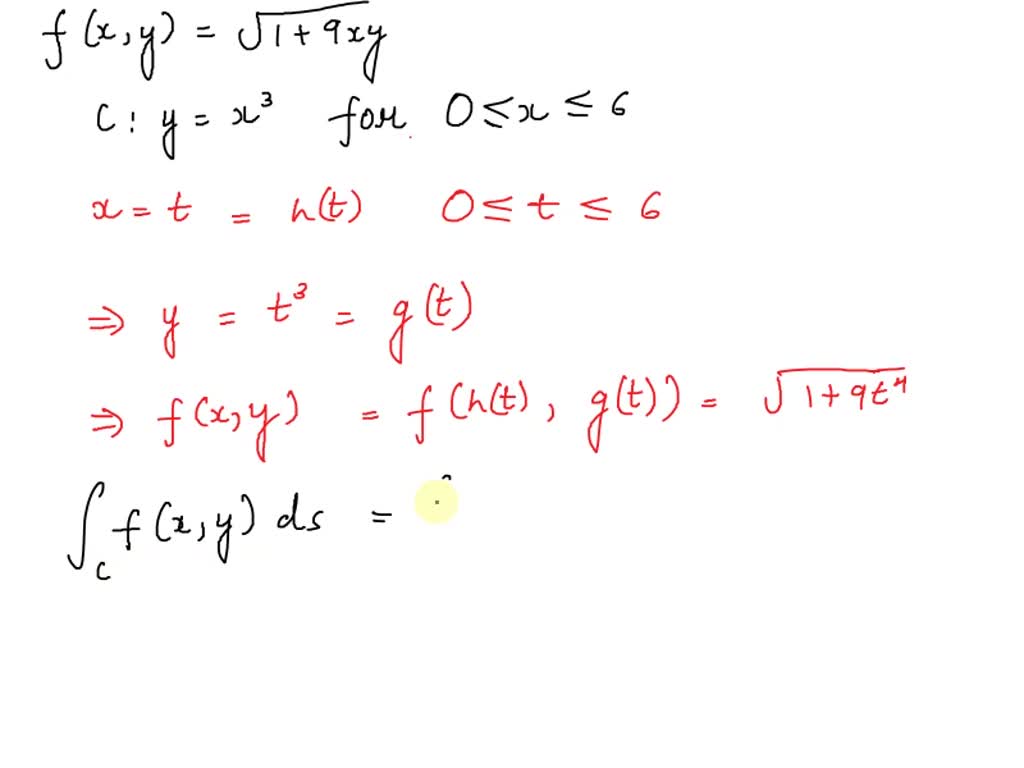 f(x,y) = √(1+9xy)
C: y = x³ for 0 ≤ x ≤ 6
x = t = h(t) 0 ≤ t ≤ 6
⇒ y = t³ = g(t)
⇒ f(x,y) = f(h(t), g(t)) = √(1+9t⁴)
∫_C f(x,y) ds =